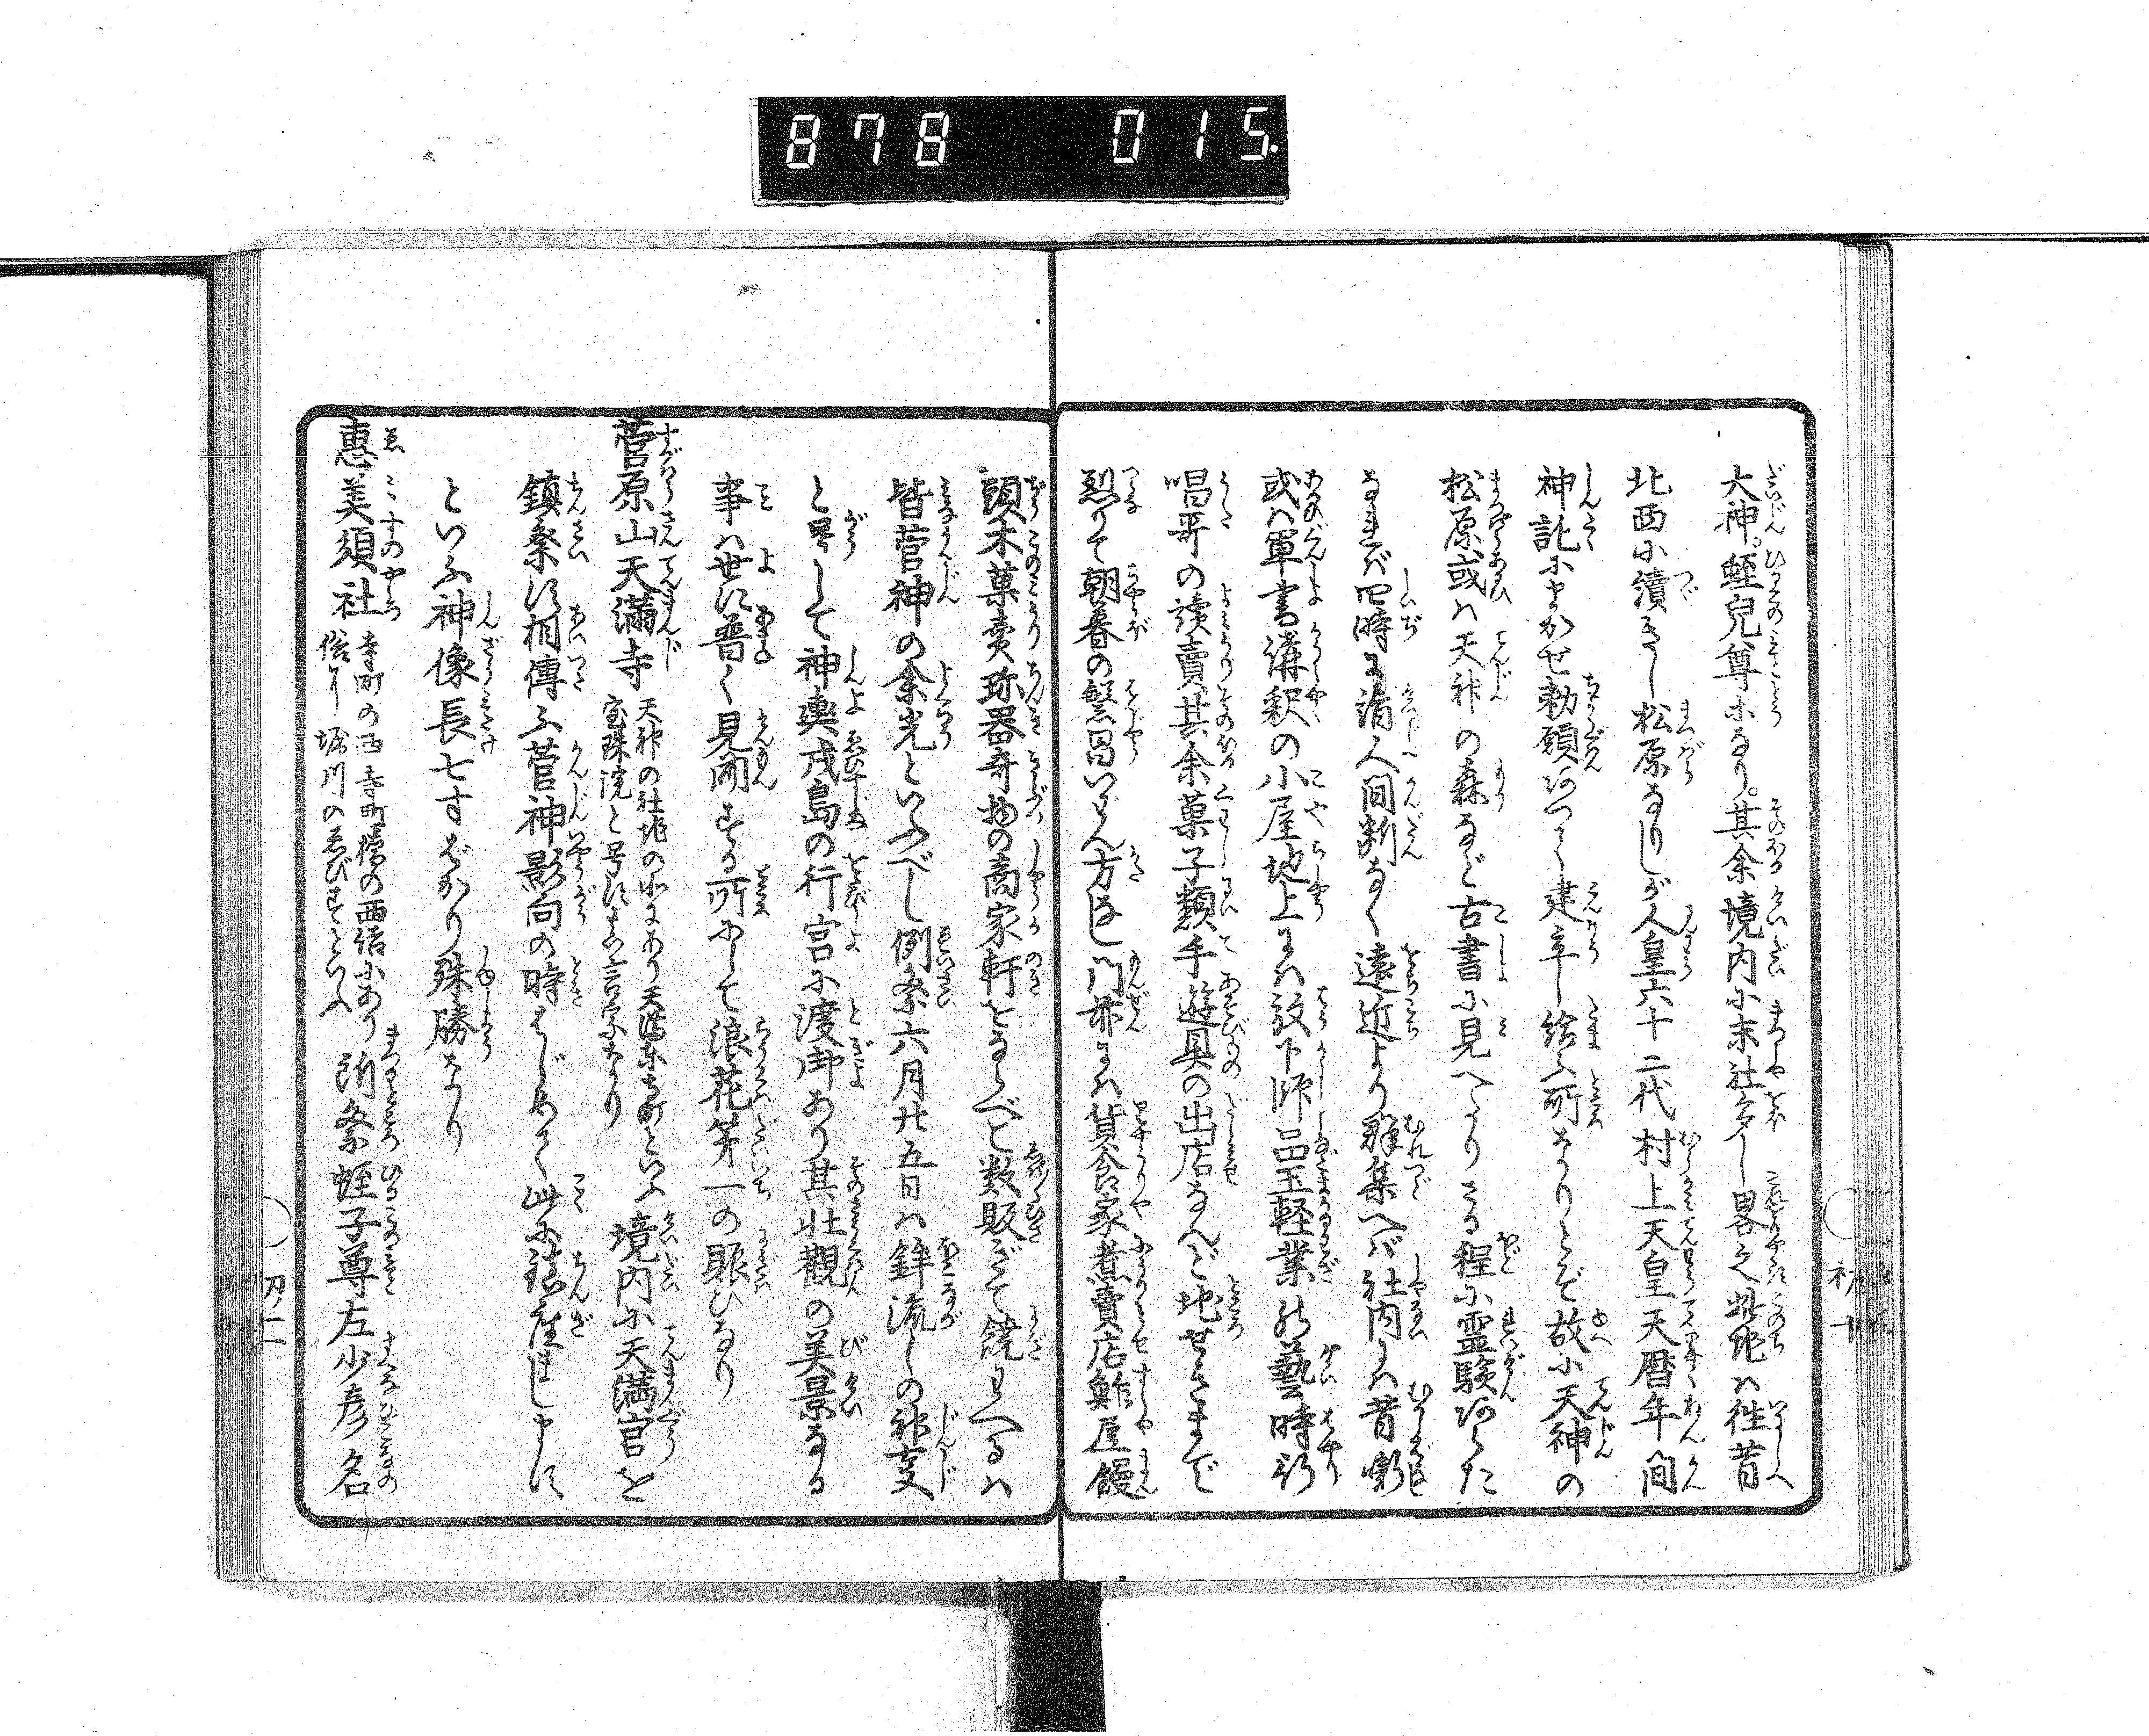 878 015.
大神。蛭兒尊等なり。其余境内に末社多し畧之此地は往昔
北西に續きし松原なりしが人皇六十二代村上天皇天暦年間
神託にまかせ勅願あつて建立し給ふ所なりとぞ故に天神の
松原或は天神の森など古書に見へたりさる程に霊験あらた
なれば四時に詣人間断なく遠近より群集へば社内には昔噺
或は軍書講釈の小屋地上には放下師品玉軽業の藝時行
唱哥の讀賣其余菓子類手遊具の出店なんど地せきまで
烈りて朝暮の繁昌いはん方なし門前には貨食家煮賣店鮓屋饅
頭木菓賣珍器奇物の商家軒をならべて数販ぎて饒はへるは
皆菅神の余光といふべし例祭六月廿五日は鉾流しの神事
と号して神輿戎島の行宮に渡御あり其壮觀の美景なる
事は世に普く見聞する所にして浪花第一の賑ひなり
菅原山天満寺
天神の社地の北にあり天満東寺町といふ
宝珠院と号す真言宗なり
境内に天満宮を
鎮祭す相傳ふ菅神影向の時はじめて此に鎮座ましますに
といふ神像長七寸ばかり殊勝なり
惠美須社
寺町の西寺町橋の西詰にあり
俗に堀川のゑびすといふ
所祭蛭子尊左少彦名